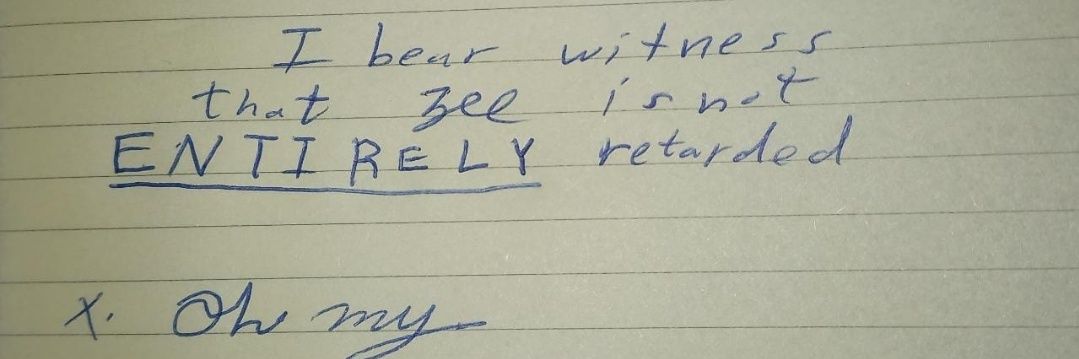 I bear witness
that zee is not
ENTIRELY retarded
x. Oh my